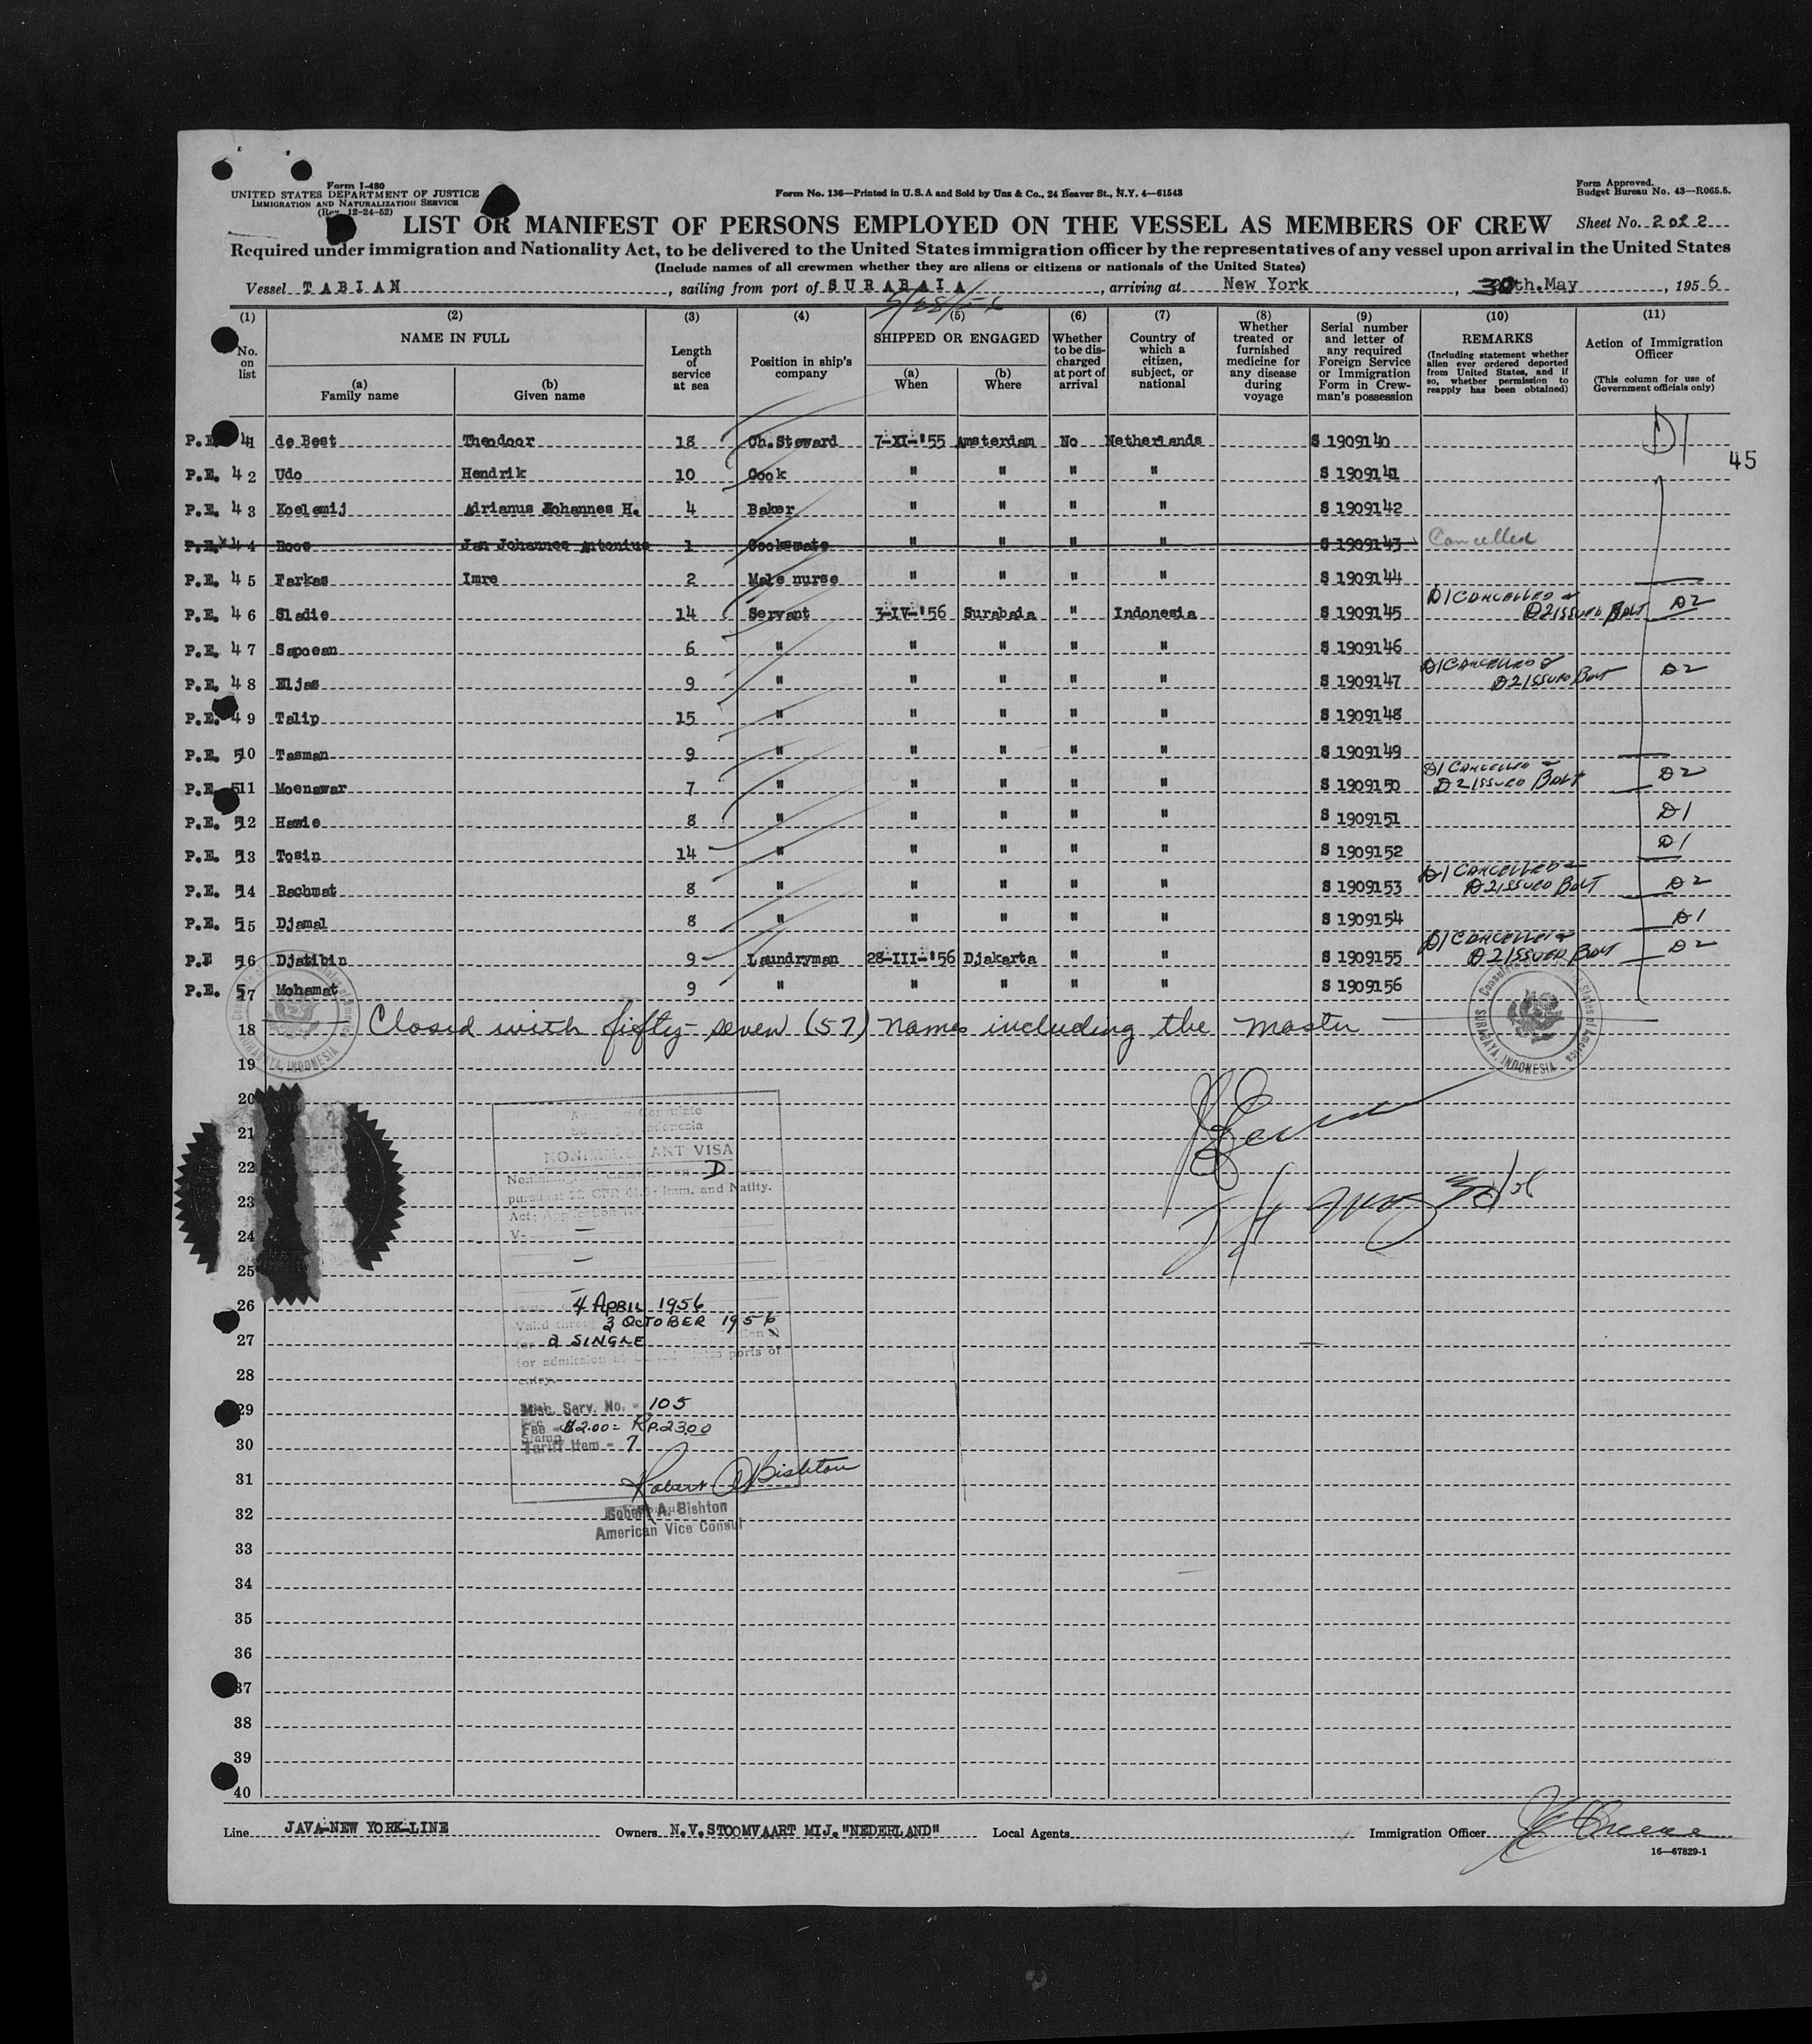 Form I-480
UNITED STATES DEPARTMENT OF JUSTICE
IMMIGRATION AND NATURALIZATION SERVICE
(Rev. 12-24-52)
Form No. 136—Printed in U.S.A and Sold by Unz & Co., 24 Beaver St., N.Y. 4—61543
Form Approved.
Budget Bureau No. 43—R065.5.
LIST OR MANIFEST OF PERSONS EMPLOYED ON THE VESSEL AS MEMBERS OF CREW
Sheet No. 2 of 2
Required under immigration and Nationality Act, to be delivered to the United States immigration officer by the representatives of any vessel upon arrival in the United States
(Include names of all crewmen whether they are aliens or citizens or nationals of the United States)
Vessel TABIAN, sailing from port of SURABAIA, arriving at New York, 30th.May, 1956
5/28/56
(1) (2) (3) (4) (5) (6) (7) (8) (9) (10) (11)
No. on list
NAME IN FULL
(a) Family name
(b) Given name
Length of service at sea
Position in ship's company
SHIPPED OR ENGAGED
(a) When
(b) Where
Whether to be discharged at port of arrival
Country of which a citizen, subject, or national
Whether treated or furnished medicine for any disease during voyage
Serial number and letter of any required Foreign Service or Immigration Form in Crewman's possession
REMARKS
(Including statement whether alien ever ordered deported from United States, and if so, whether permission to reapply has been obtained)
Action of Immigration Officer
(This column for use of Government officials only)
P.E. 41 de Best Theodoor 18 Ch.Steward 7-XI-'55 Amsterdam No Netherlands S 1909140 D1
45
P.E. 42 Udo Hendrik 10 Cook " " " " S 1909141
P.E. 43 Koelemij Adrianus Johannes H. 4 Baker " " " " S 1909142
P.E. x 44 Roos Jan Johannes Antonius 1 Cooksmate " " " " S 1909143 Cancelled
P.E. 45 Farkas Imre 2 Male nurse " " " " S 1909144
P.E. 46 Sladie 14 Servant 3-IV-'56 Surabaia " Indonesia S 1909145 D1 CANCELLED & D2 ISSUED BOLT D2
P.E. 47 Sapoean 6 " " " " " S 1909146
P.E. 48 Eljas 9 " " " " " S 1909147 D1 CANCELLED & D2 ISSUED BOLT D2
P.E. 49 Talip 15 " " " " " S 1909148
P.E. 510 Tasman 9 " " " " " S 1909149
P.E. 511 Moenawar 7 " " " " " S 1909150 D1 CANCELLED & D2 ISSUED BOLT D2
P.E. 512 Hawie 8 " " " " " S 1909151 D1
P.E. 513 Tosin 14 " " " " " S 1909152 D1
P.E. 514 Rachmat 8 " " " " " S 1909153 D1 CANCELLED & D2 ISSUED BOLT D2
P.E. 515 Djamal 8 " " " " " S 1909154 D1
P.E 516 Djatibin 9 Laundryman 28-III-'56 Djakarta " " S 1909155 D1 CANCELLED & D2 ISSUED BOLT D2
P.E. 517 Mohamat 9 " " " " " S 1909156
18 Closed with fifty-seven (57) names including the master
SURABAYA, INDONESIA
SURABAYA, INDONESIA
19
20
American Consulate
Surabaya, Indonesia
21
NONIMMIGRANT VISA
22
D
pursuant 22 CFR Imm. and Natlty.
23
Act; Application
24
V-
25
26
4 APRIL 1956
Valid through 3 OCTOBER 1956
27
for a SINGLE
for admission at ports of
28
entry.
29
Misc. Serv. No. - 105
Fee - $2.00 = Rp.23.00
30
Tariff Item - 7
31
Robert A Bishton
32
Robert A. Bishton
American Vice Consul
33
34
35
36
37
38
39
40
Line JAVA-NEW YORK-LINE Owners N.V.STOOMVAART MIJ."NEDERLAND" Local Agents Immigration Officer
16—67829-1